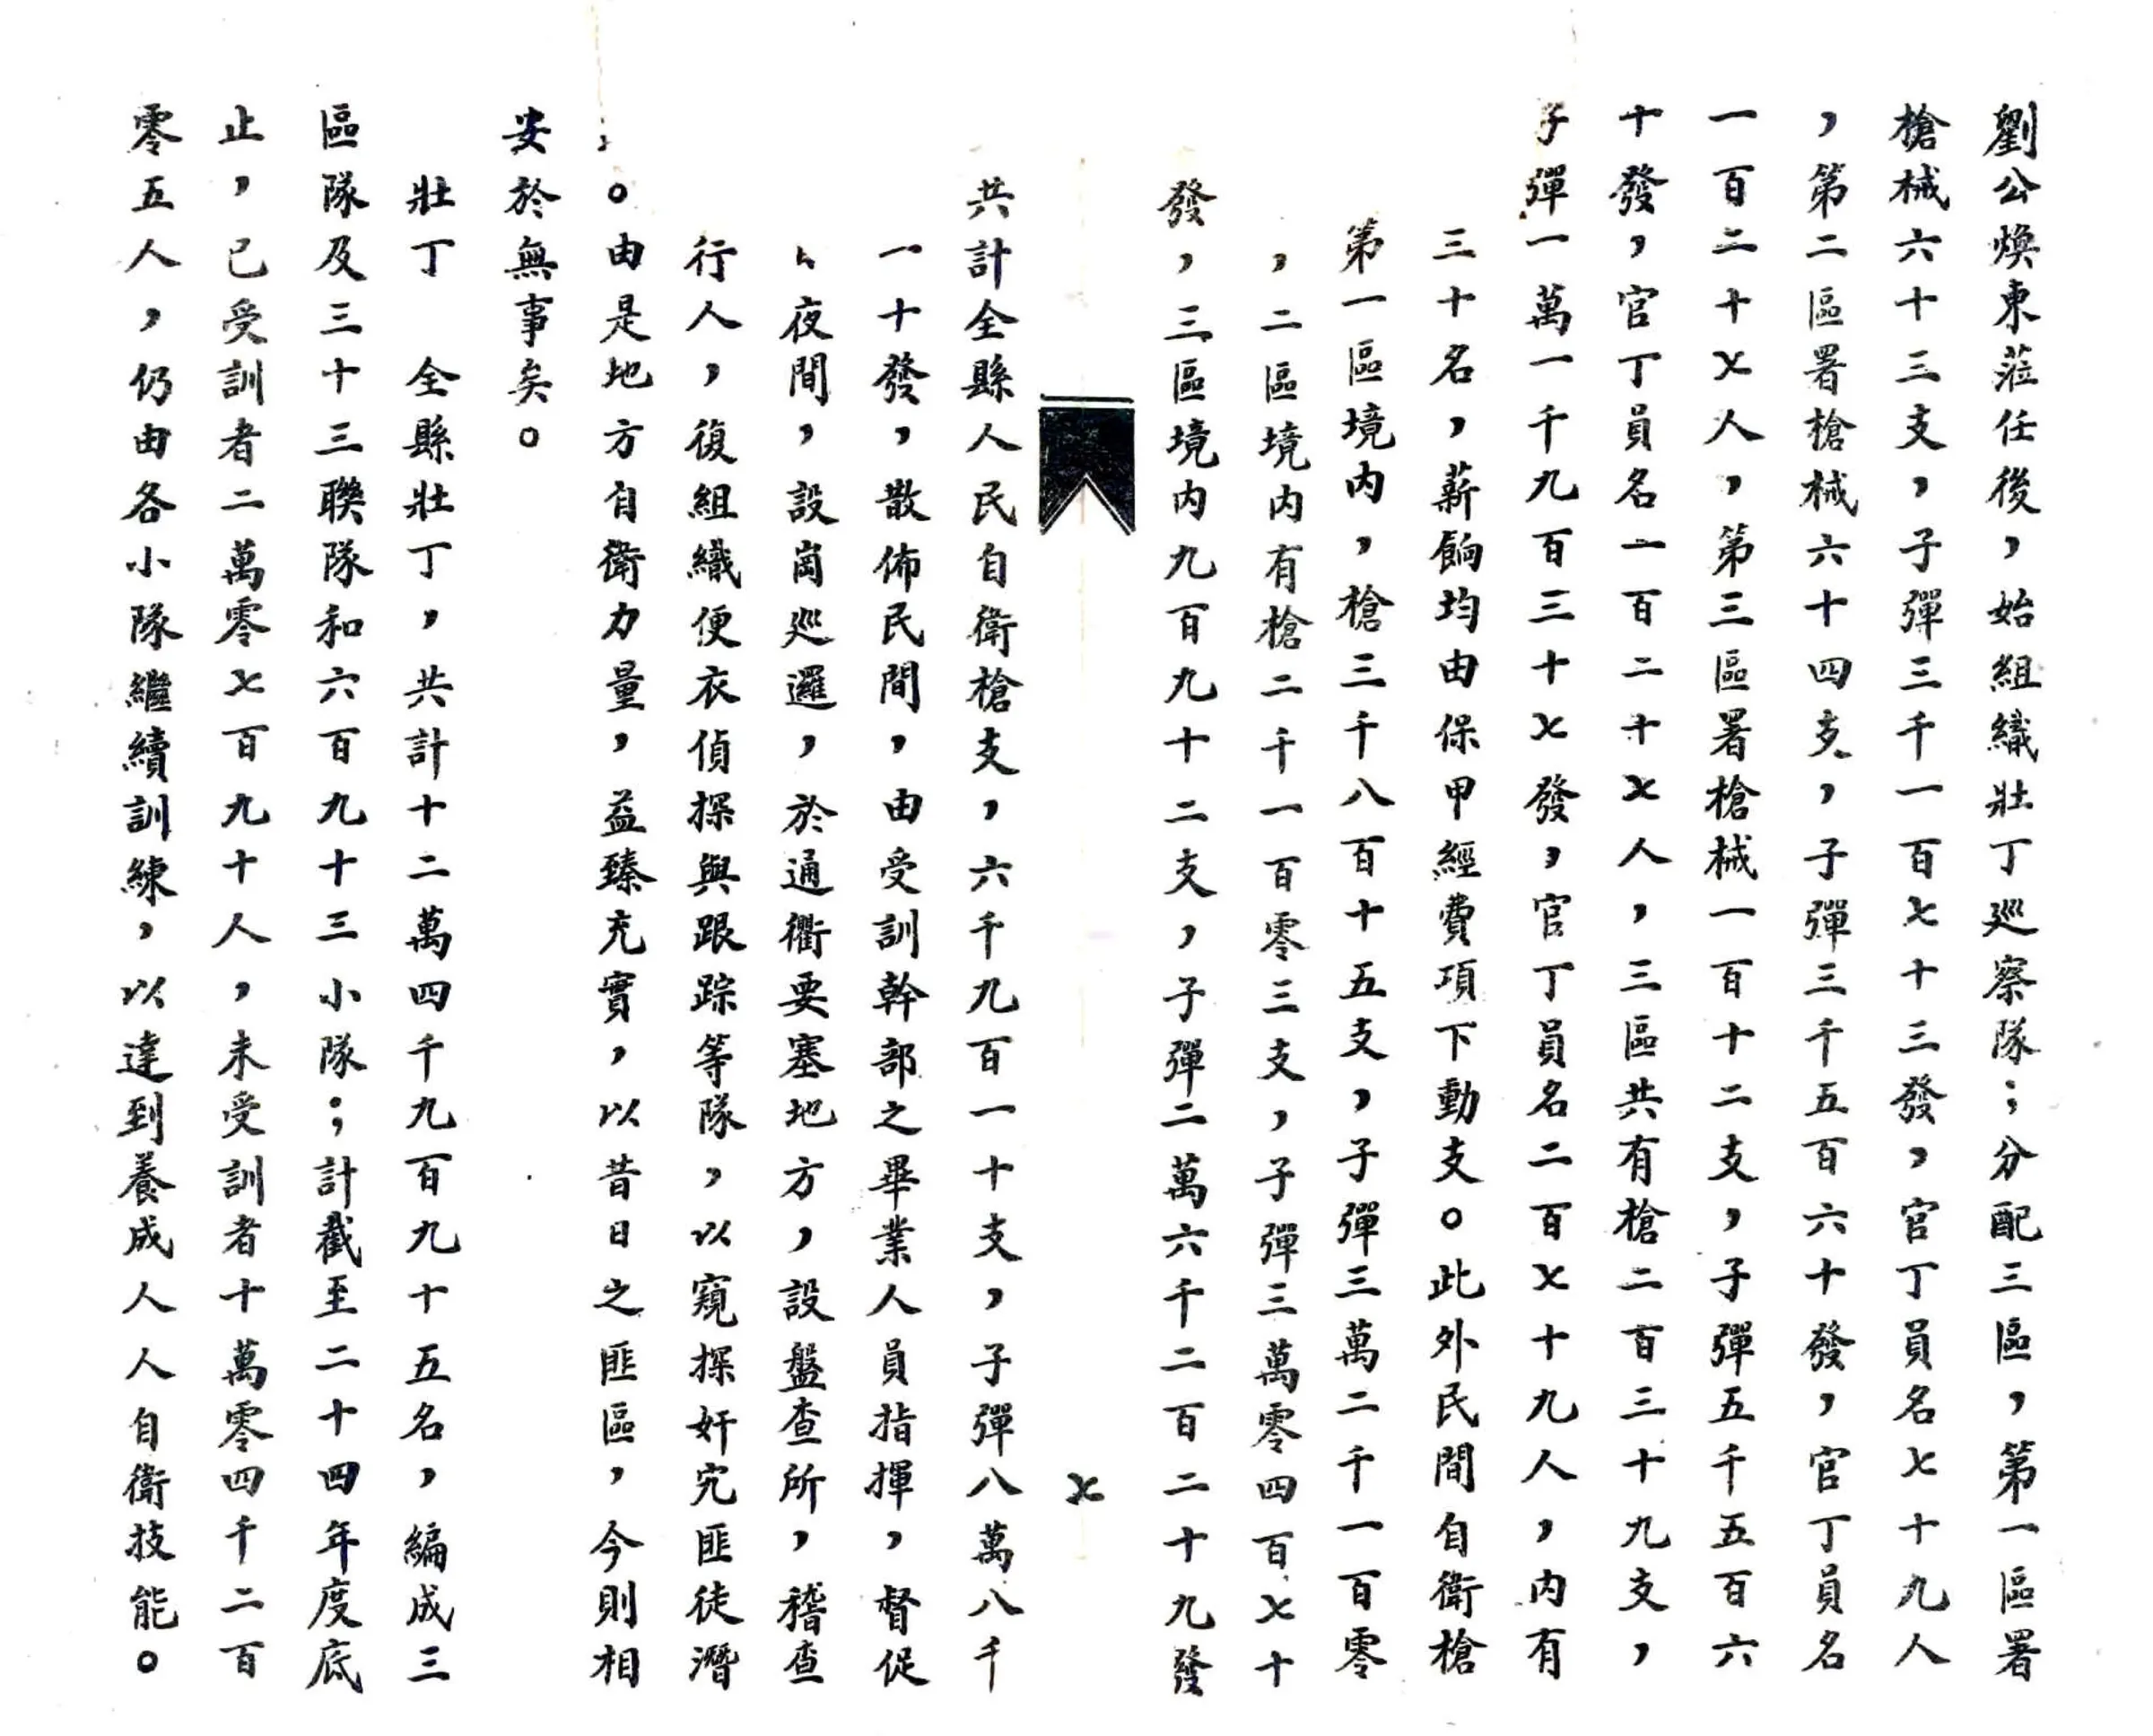 劉公煥東蒞任後，始組織壯丁巡察隊；分配三區，第一區署
槍械六十三支，子彈三千一百七十三發，官丁員名七十九人
，第二區署槍械六十四支，子彈三千五百六十發，官丁員名
一百二十七人，第三區署槍械一百十二支，子彈五千五百六
十發，官丁員名一百二十七人，三區共有槍二百三十九支，
子彈一萬一千九百三十七發，官丁員名二百七十九人，內有
三十名，薪餉均由保甲經費項下動支。此外民間自衛槍
第一區境內，槍三千八百十五支，子彈三萬二千一百零
，二區境內有槍二千一百零三支，子彈三萬零四百七十
發，三區境內九百九十二支，子彈二萬六千二百二十九發
七
共計全縣人民自衛槍支，六千九百一十支，子彈八萬八千
一十發，散佈民間，由受訓幹部之畢業人員指揮，督促
夜間，設崗巡邏，於通衢要塞地方，設盤查所，稽查
行人，復組織便衣偵探與跟踪等隊，以窺探奸宄匪徒潛
。由是地方自衛力量，益臻充實，以昔日之匪區，今則相
安於無事矣。
壯丁　全縣壯丁，共計十二萬四千九百九十五名，編成三
區隊及三十三聯隊和六百九十三小隊；計截至二十四年度底
止，已受訓者二萬零七百九十人，未受訓者十萬零四千二百
零五人，仍由各小隊繼續訓練，以達到養成人人自衛技能。